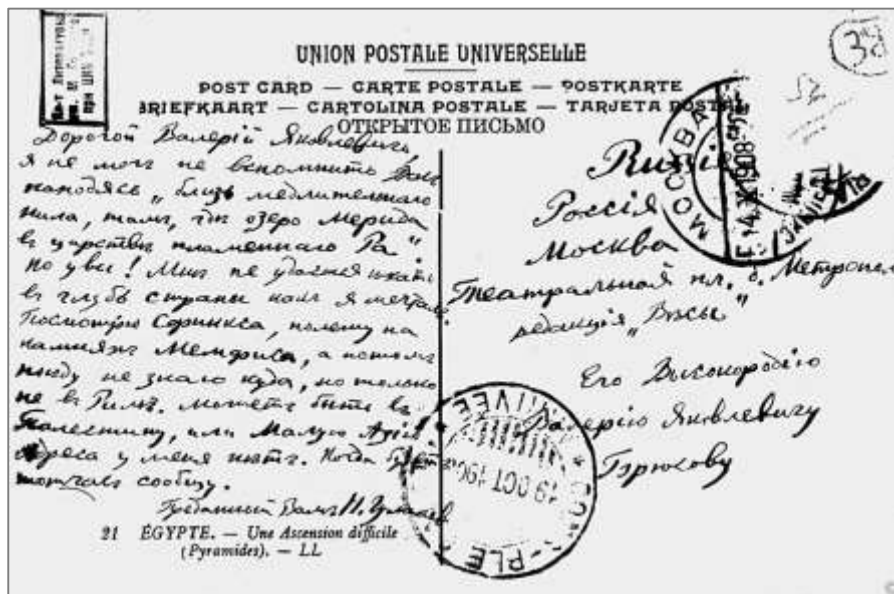 UNION POSTALE UNIVERSELLE
POST CARD — CARTE POSTALE — POSTKARTE
BRIEFKAART — CARTOLINA POSTALE — TARJETA POSTAL
ОТКРЫТОЕ ПИСЬМО
Дорогой Валерій Яковлевичъ
я не могъ не вспомнить Васъ
находясь „близъ медлительнаго
Нила, тамъ, гдѣ озеро Мерида
въ царствѣ пламеннаго Ра“
Но увы! Мнѣ не удастся ѣхать
въ глубь страны какъ я мечталъ.
Посмотрю Сфинкса, полежу на
камняхъ Мемфиса, а потомъ
поѣду не знаю куда, но только
не въ Римъ. Можетъ быть въ
Палестину, или Малую Азію.
Адреса у меня нѣтъ. Когда
сообщу.
Преданный Вамъ Н. Гумилевъ
21 ÉGYPTE. — Une Ascension difficile
(Pyramides). — LL
Russie
Россія
Москва
Театральная пл. д. Метрополь
редакція „Вѣсы“
Его Высокородію
Валерію Яковлевичу
Брюсову
МОСКВА
1908
19 OCT 190